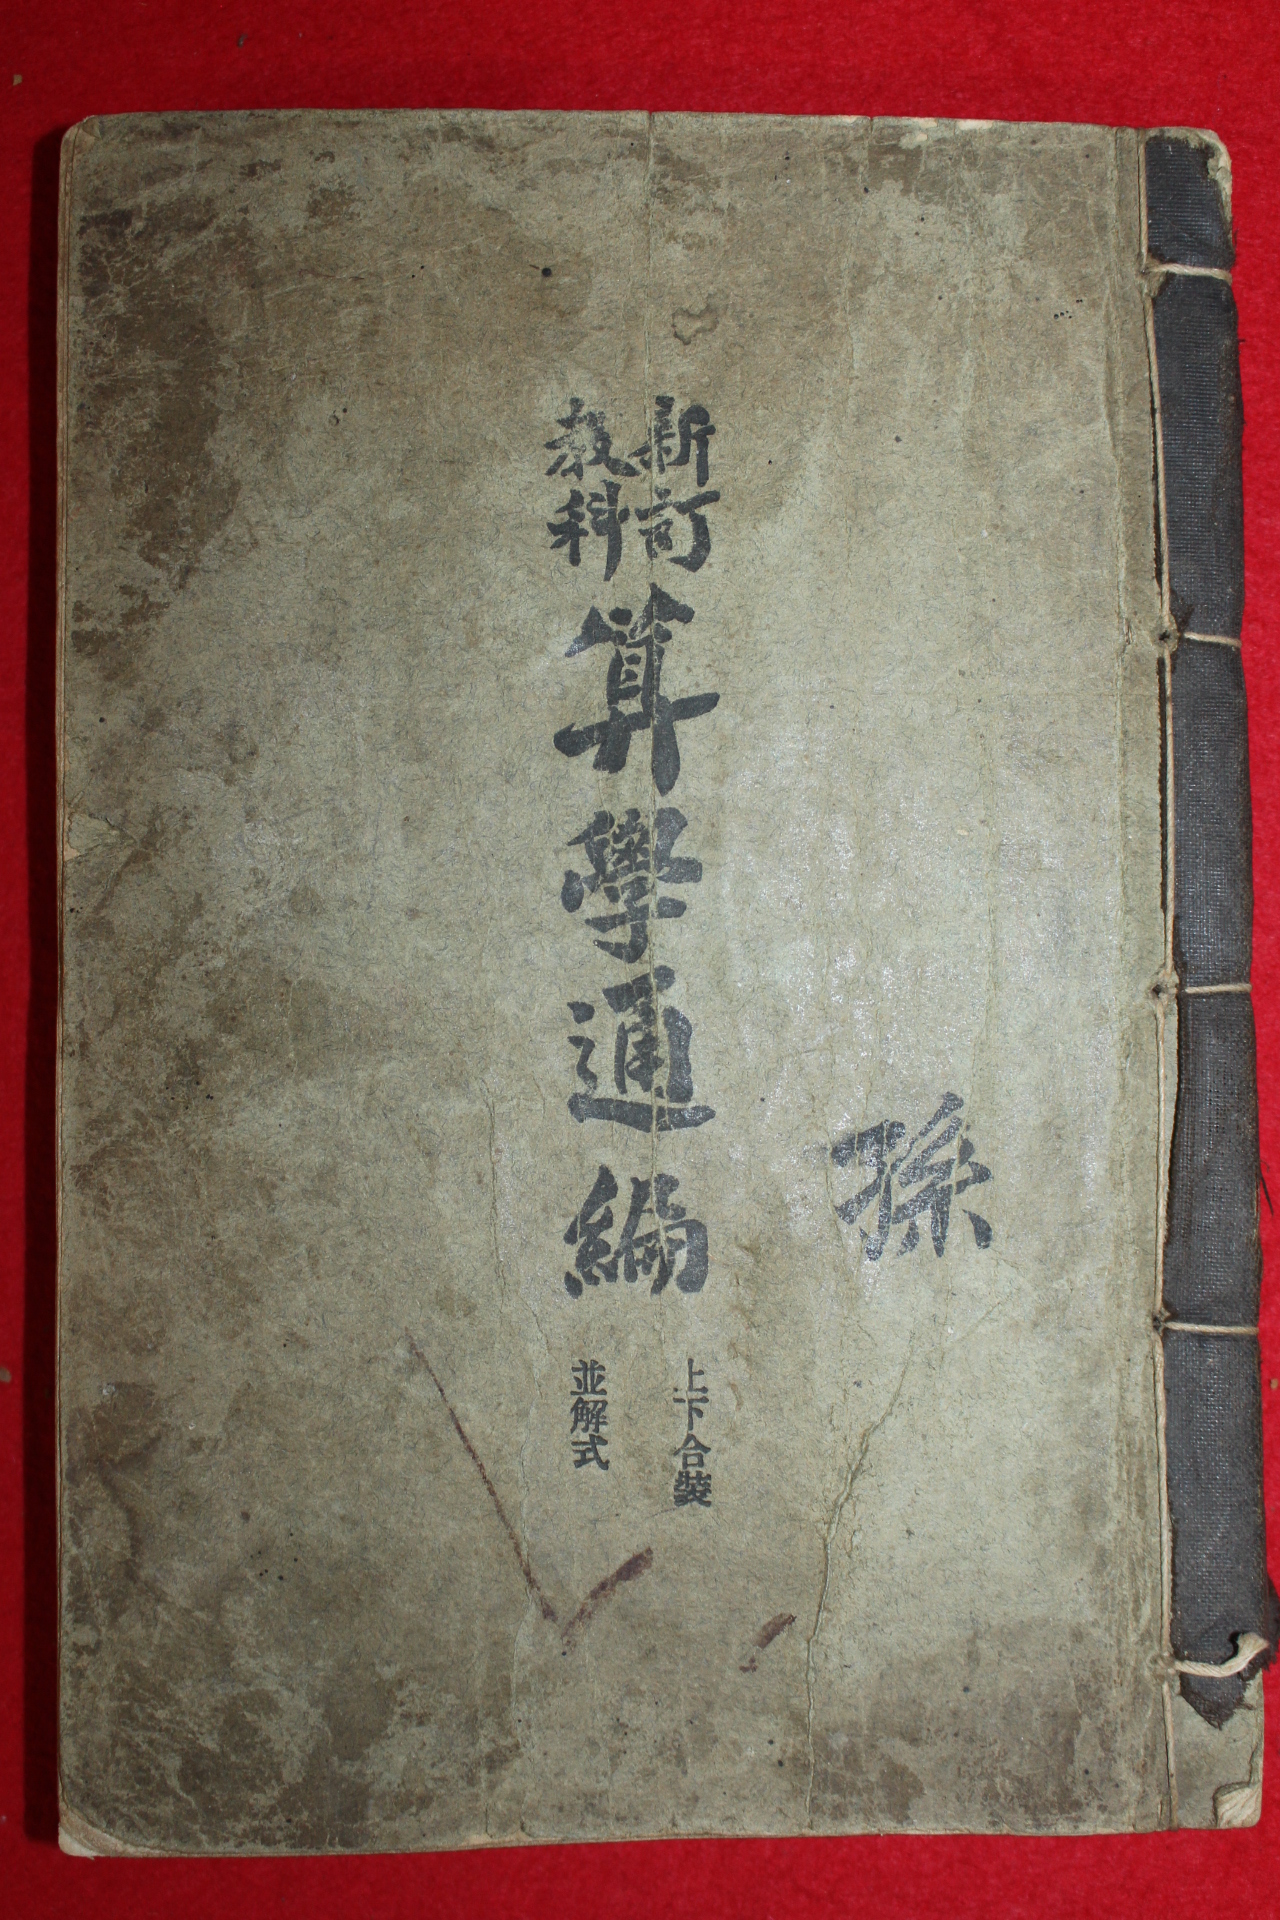 孫
新訂
教科
算學通編
上下合裝
並解式